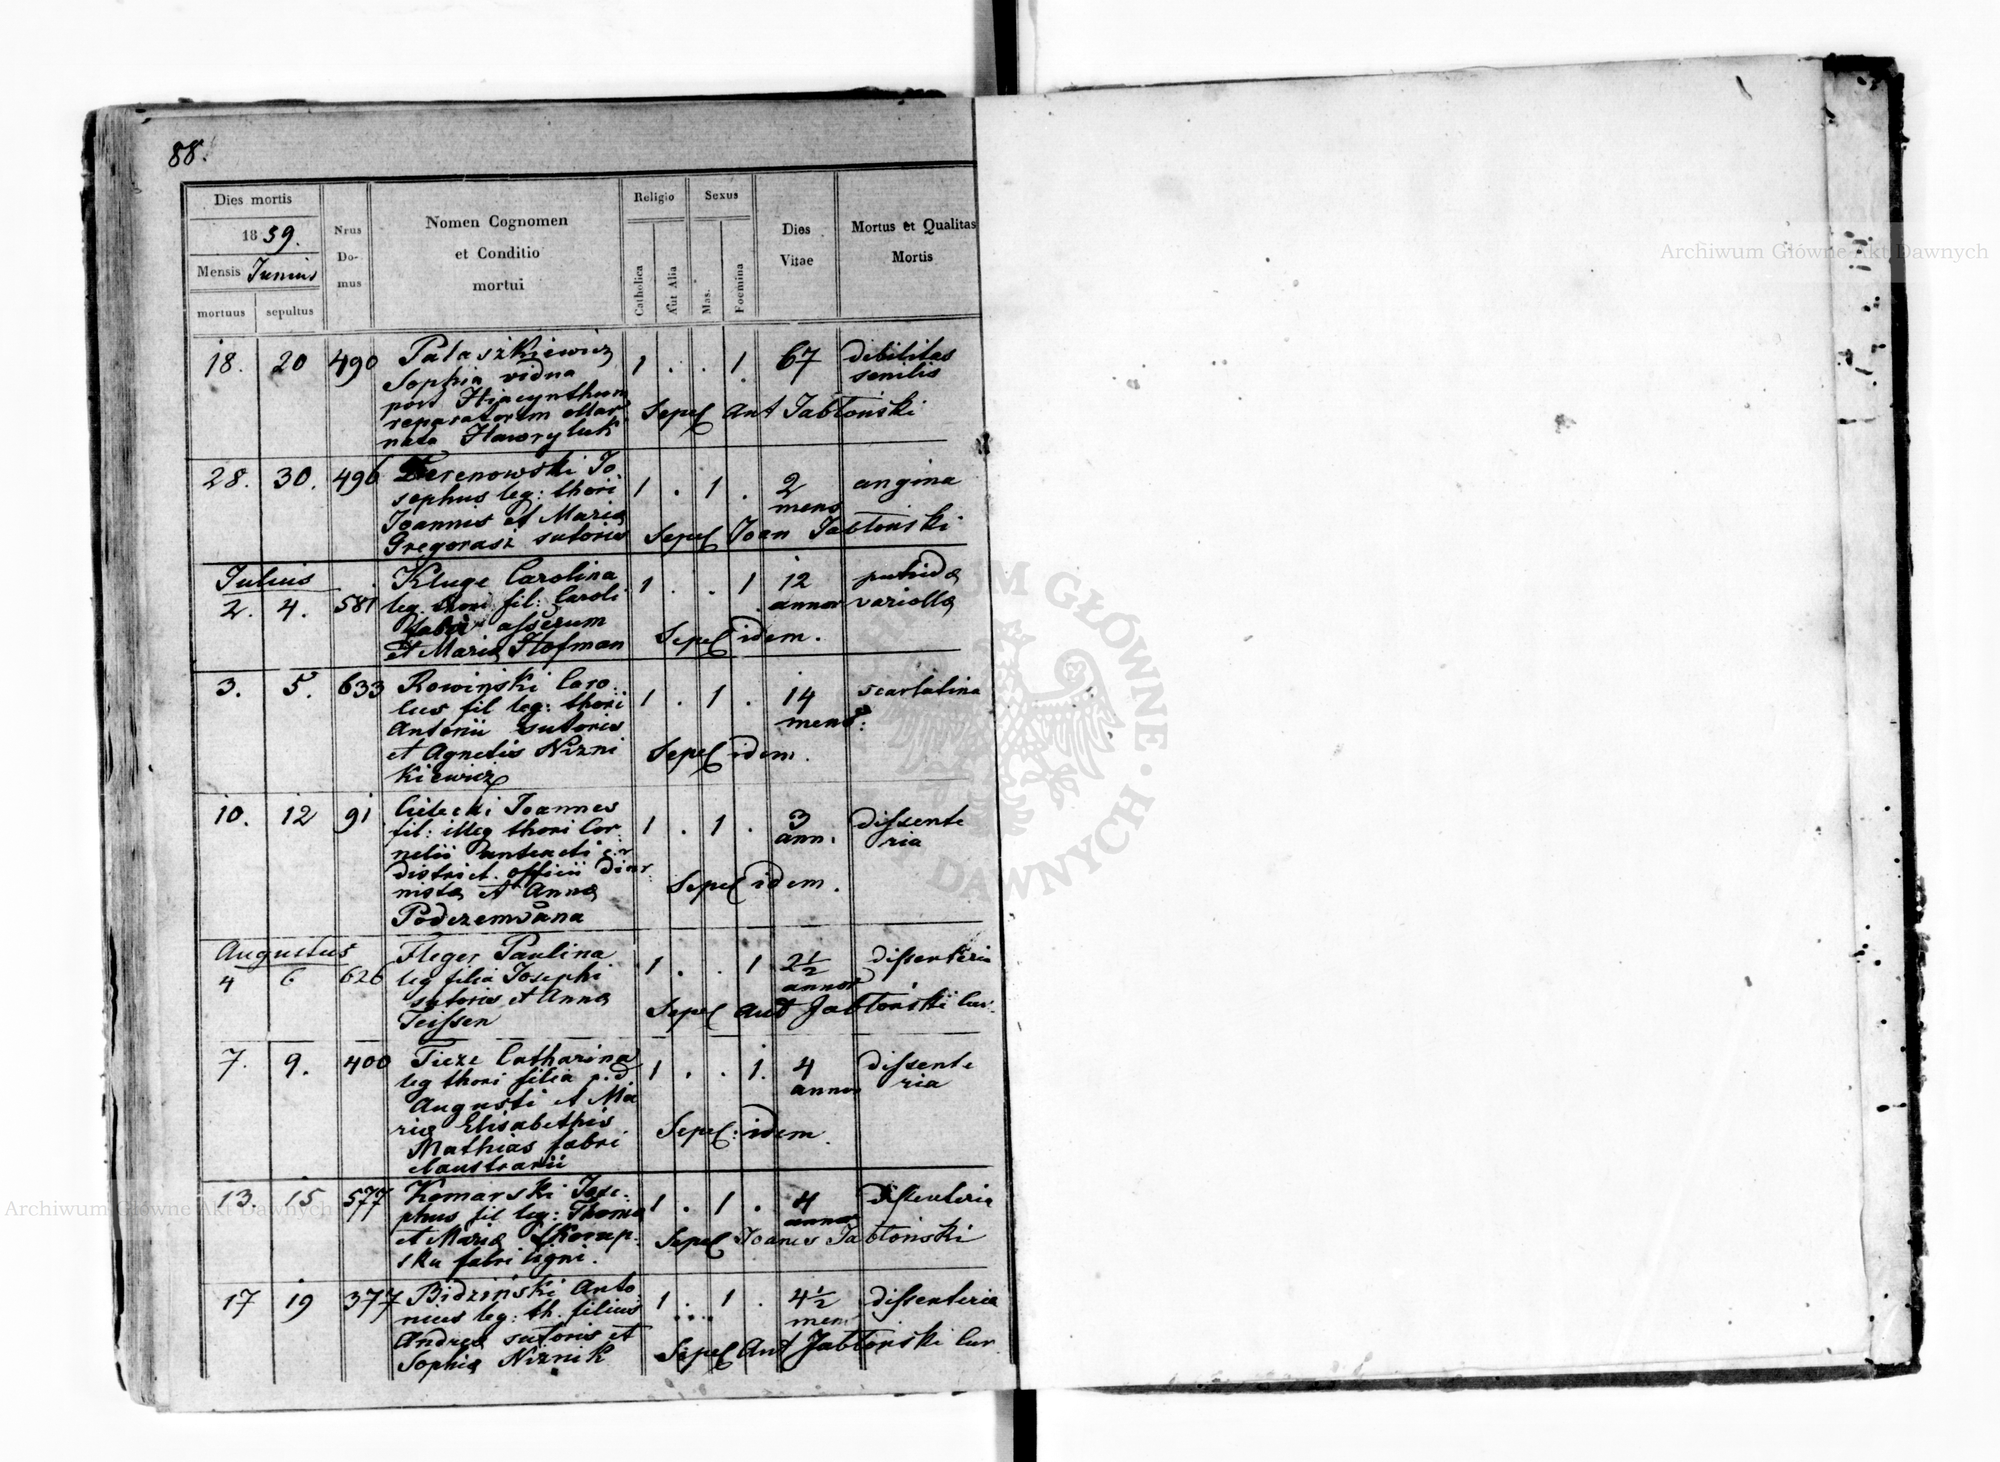 88.
Dies mortis
1839.
Mensis Junius
mortuus sepultus
Nrus Do- mus
Nomen Cognomen
et Conditio
mortui
Religio
Catholica
Aut Alia
Sexus
Mas.
Foemina
Dies
Vitae
Mortus et Qualitas
Mortis
18. 20 490 Palaszkiewicz 1 . . 1 67 debilitas
Sophia vidua senilis
post Hiacynthum
reparatorem
nata Hawryluk
Sepel Ant Jabłoński
28. 30. 496 Terenowski Jo 1 . 1 . 2 angina
sephus leg: thori mens
Joannis et Maria
Gregorasz sutoris
Sepel Joan Jabłoński
Julius
2. 4. 581 Kluge Carolina 1 . . 1 12 putrida
leg. thori fil: Caroli annor variolla
fabri asserum
et Maria Hofman
Sepel idem.
3. 5. 633 Rowinski Caro- 1 . 1 . 14 scarlatina
lus fil leg: thori mens:
Antonii sutoris
et Agnetis Nizni
kiewicz
Sepel idem.
10. 12 91 Joannes 1 . 1 . 3 dissente
fil: illeg thori Cor ann. ria
nelii
district. officii diur
nista et Anna
Podczemvana
Sepel idem.
Augustus
4 6 626 Fleger Paulina 1 . . 1 2½ dissenteria
leg filia Josephi annor
sutoris et Anna
Teissen
Sepel Ant Jabłoński Cur.
7. 9. 400 Tieze Catharina 1 . . 1. 4 dissente
leg thori filia annor ria
Augusti et Ma
ria Elisabethis
Mathias fabri
claustrarii
Sepel: idem.
13. 15 577 Komarski Jose- 1 . 1 . 4 dissenteria
phus fil leg: Thoma annor
et Maria Skorup-
ska fabri ligni.
Sepel Joanes Jabłoński
17 19 377 Bidziński Anto 1 . 1 . 4½ dissenteria
nius leg: th. filius mens
Andrea sutoris et
Sophia Niznik
Sepel Ant Jabłoński Cur.
Archiwum Główne Akt Dawnych
Archiwum Główne Akt Dawnych
ARCHIWUM GŁÓWNE AKT DAWNYCH